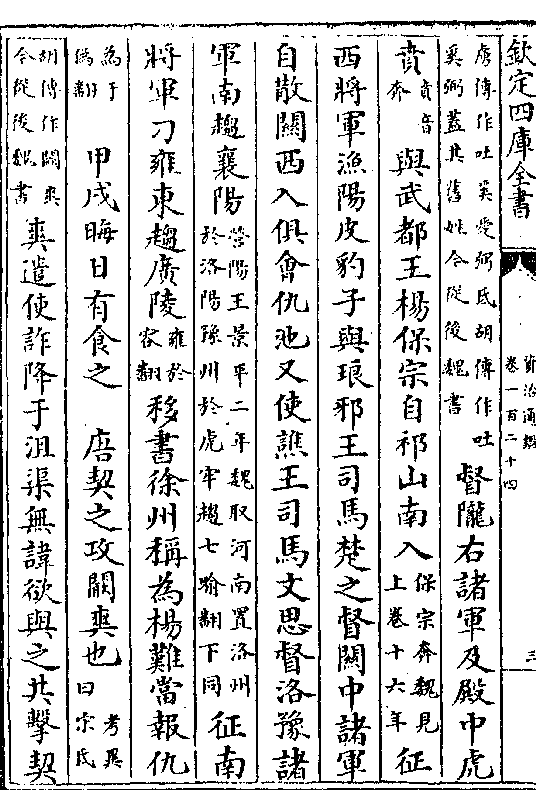 欽定四庫全書
資治通鑑
卷一百二十四
三
虜傳作吐奚愛弼氐胡傳作吐奚弼蓋其舊姓今從後魏書督隴右諸軍及殿中虎
賁賁音奔與武都王楊保宗自祁山南入保宗奔魏見上卷十六年征
西將軍漁陽皮豹子與琅邪王司馬楚之督關中諸軍
自散關西入俱會仇池又使譙王司馬文思督洛豫諸
軍南趨襄陽營陽王景平二年魏取河南置洛州於洛陽豫州於虎牢趨七喻翻下同征南
將軍刁雍東趨廣陵雍於容翻移書徐州稱為楊難當報仇
為于偽翻 甲戌晦日有食之 唐契之攻闞爽也考異曰宋氐
胡傳作闞爽今從後魏書爽遣使詐降于沮渠無諱欲與之共擊契